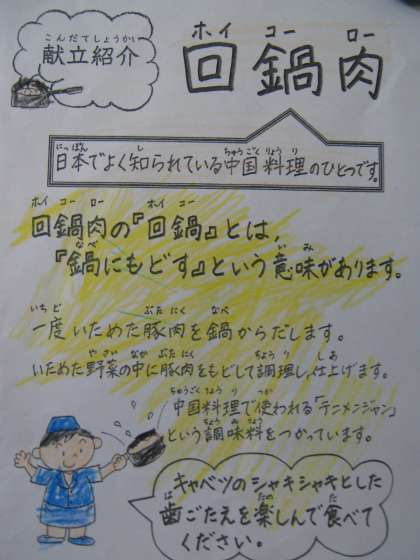 こんだてしょうかい
献立紹介
ホイ コー ロー
回鍋肉
にっぽん し ちゅうごくりょうり
日本でよく知られている中国料理のひとつです。
ホイ コー ロー ホイ コー
回鍋肉の『回鍋』とは、
なべ いみ
『鍋にもどす』という意味があります。
いちど ぶたにく なべ
一度いためた豚肉を鍋からだします。
やさい なか ぶたにく ちょうり しあ
いためた野菜の中に豚肉をもどして調理し、仕上げます。
ちゅうごくりょうり つか
中国料理で使われる「テンメンジャン」
ちょうみりょう
という調味料をつかっています。
キャベツのシャキシャキとした
は たの た
歯ごたえを楽しんで食べて
ください。